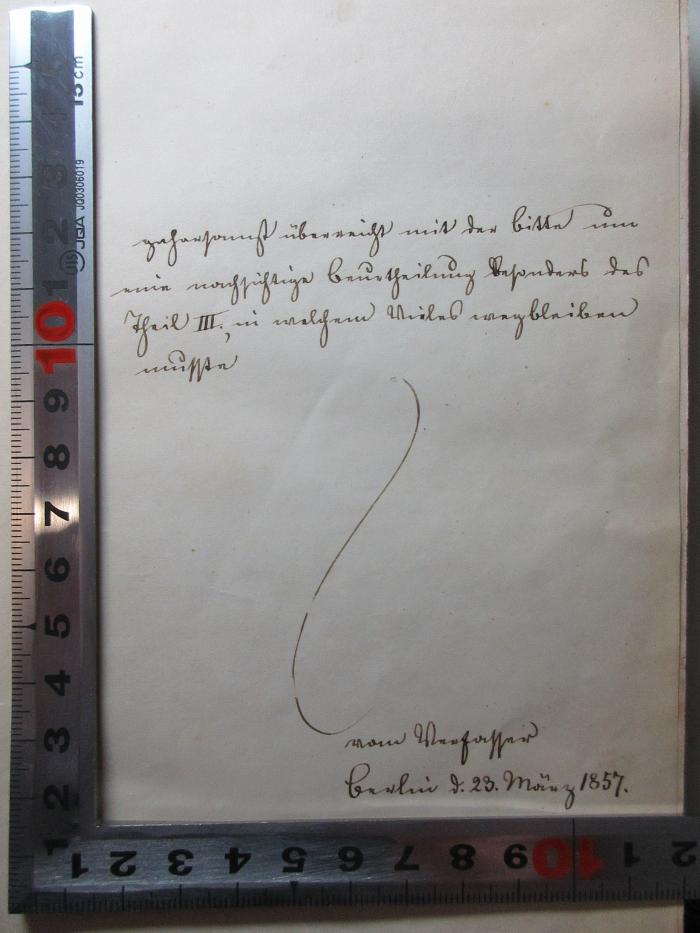 gehorsamst überreicht mit der Bitte um
eine nachsichtige Beurtheilung besonders des
Theil III., in welchem Vieles wegbleiben
musste
vom Verfasser
Berlin d. 23. März 1857.
15 cm
JQA J00306019
1 2 3 4 5 6 7 8 9 10 1 2 3 4
1 2 3 4 5 6 7 8 9 10 1 2